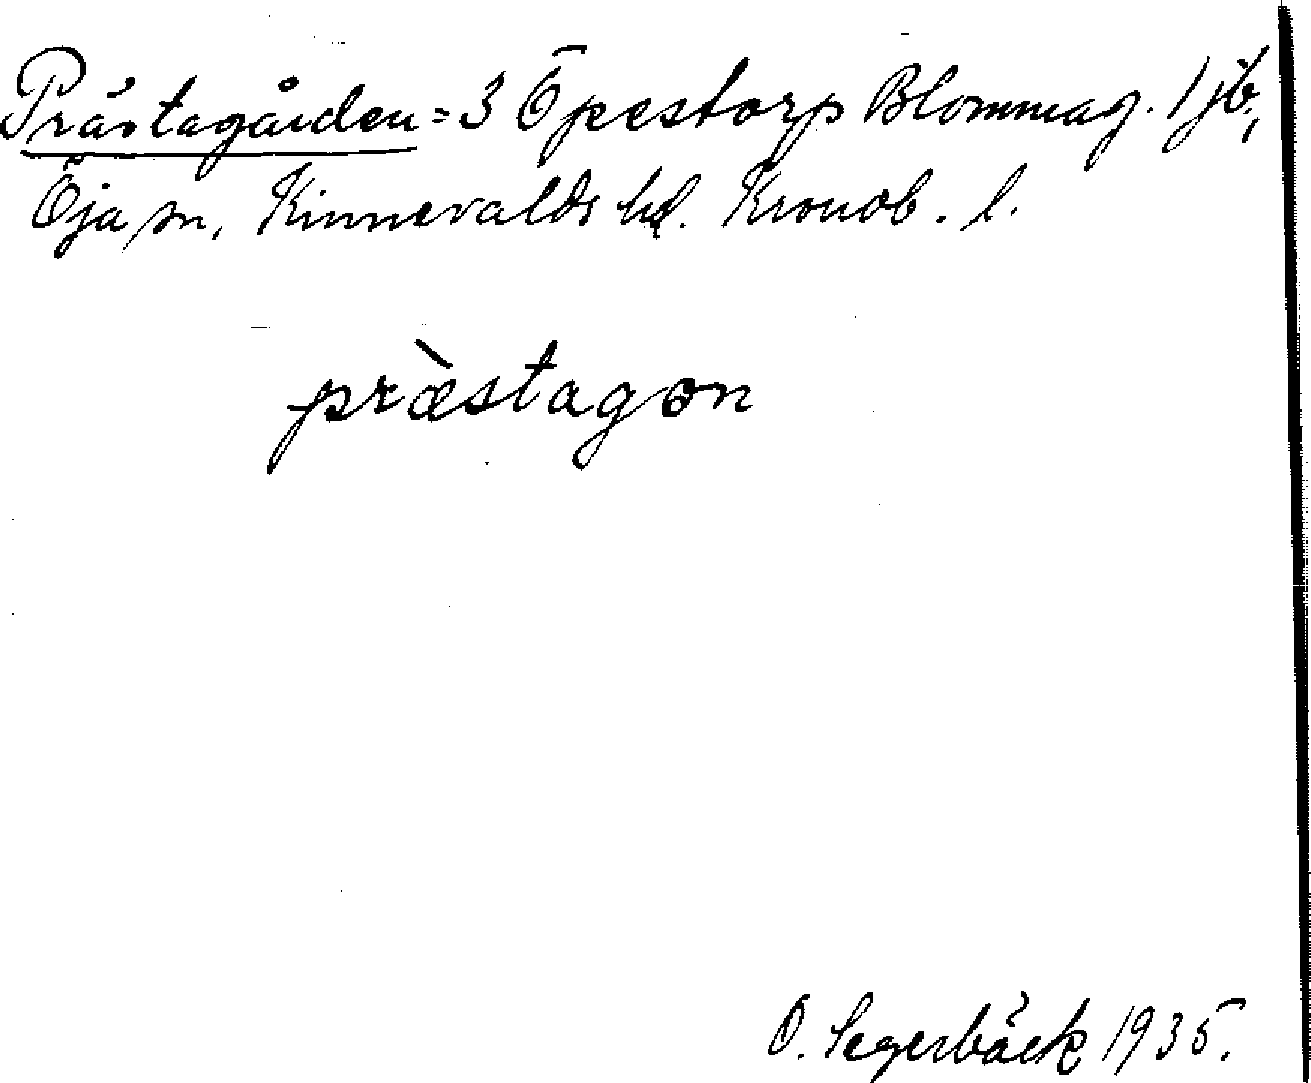 Prästagården = 3 Öpestorp Blommag. 1 jb,
Öja sn, Kinnevalds hd. Kronob. l.
præ̀stagon
O. Segerbäck 1935.